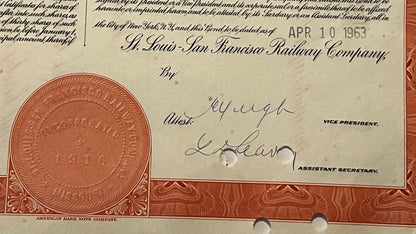 Certificate for shares of
after such shares of
thirty shares of such
before January 1,
principal amount shares if
by its President or a Vice President and its corporate seal or a facsimile thereof to be affixed
hereunto or imprinted hereon and to be attested by its Secretary or an Assistant Secretary, all in
the City of New York, N.Y., and this Bond to be dated as of APR 10 1963
St. Louis-San Francisco Railway Company,
By
VICE PRESIDENT.
Attest:
ASSISTANT SECRETARY.
ST. LOUIS-SAN FRANCISCO RAILWAY COMPANY
INCORPORATED
1916
MISSOURI
AMERICAN BANK NOTE COMPANY.